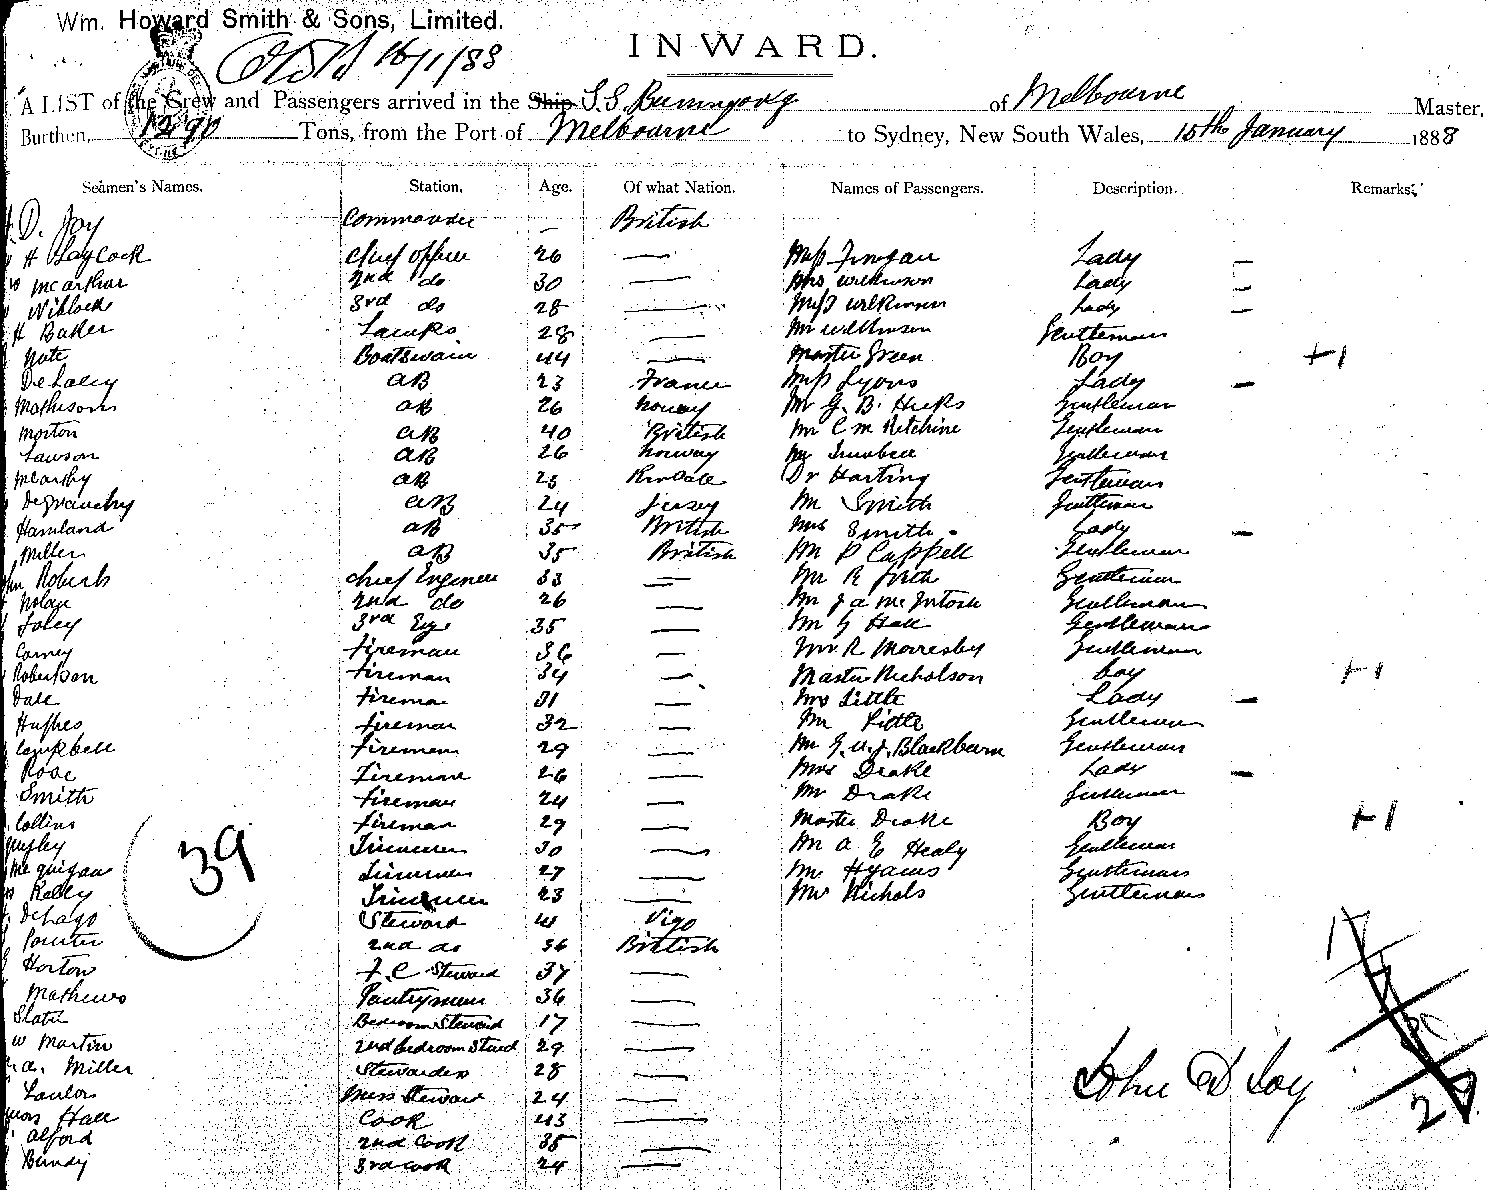 Wm. Howard Smith & Sons, Limited.
16/1/88
INWARD.
A LIST of the Crew and Passengers arrived in the Ship S.S. of Melbourne Master,
Burthen, 1290 Tons, from the Port of Melbourne to Sydney, New South Wales, 15th January 1888
Seamen's Names. Station. Age. Of what Nation. Names of Passengers. Description. Remarks.
D. Joy Commander — British
H Laycock Chief Officer 26 — Miss Lady —
McArthur 2nd do 30 — Mrs Wilkinson Lady —
3rd do 28 — Miss Wilkinson Lady —
H Baker Lamps 28 — Mr Wilkinson Gentleman
Boatswain 44 — Master Green Boy +1
AB 23 France Miss Lyons Lady —
Mathisons AB 26 Norway Mr G. B. Hicks Gentleman
Morton AB 40 British Mr C M Gentleman
Lawson AB 26 Norway Mr Gentleman
McCarthy AB Dr Harting Gentleman
AB 24 Jersey Mr Smith Gentleman
AB 35 British Mrs Smith Lady —
Miller AB 35 British Mr P Cappell Gentleman
Roberts Chief Engineer 33 — Mr R Firth Gentleman
Nolan 2nd do 26 — Mr J A McIntosh Gentleman
Foley 3rd Eng 35 — Mr G Hall Gentleman
Carney Fireman 36 — Mr R Morresby Gentleman
Robertson Fireman 34 — Master Nicholson boy +1
Dale Fireman 31 — Mrs Little Lady —
Hughes Fireman 32 — Mr Little Gentleman
Campbell Firemen 29 — Mr G. W. J. Blackburn Gentleman
Rose Fireman 26 — Mrs Drake Lady —
Smith Fireman 24 — Mr Drake Gentleman
Collins Fireman 29 — Master Drake Boy +1
39
Trimmer 30 — Mr A E Healy Gentleman
McGuigan Trimmer 27 — Mr Hyams Gentleman
Reiley Trimmer 23 — Mr Nichols Gentleman
Steward 41 Vigo
Pointer 2nd do 36 British
Horton F. C Steward 37 —
Mathews Pantryman 36 —
Slater Bedroom Steward 17 —
W Martin 2nd bedroom Steward 29 —
A. Miller Stewardess 28 —
Mess Steward 24 —
Hall Cook 43 —
Alford 2nd Cook 35 —
Bundy 3rd cook 24 —
John D Joy